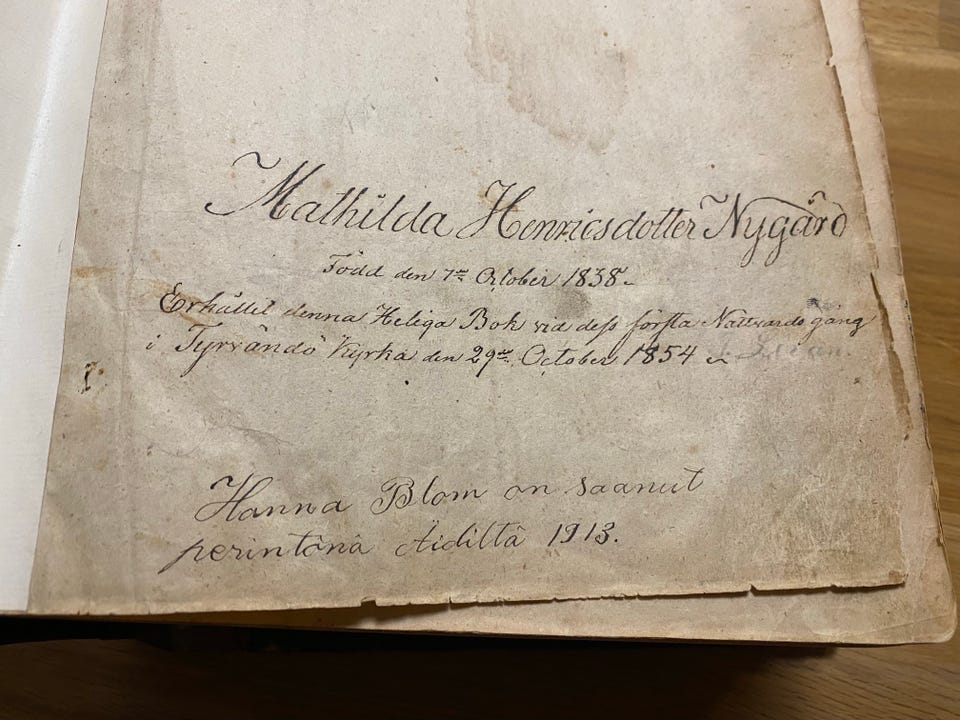 Mathilda Henricsdotter Nygård
Född den 7de October 1838.
Erhållit denna Heliga Bok vid dess första Nattvards gång
i Tyrvändö Kyrka den 29de October 1854
Hanna Blom on saanut
perintönä Äidiltä 1913.